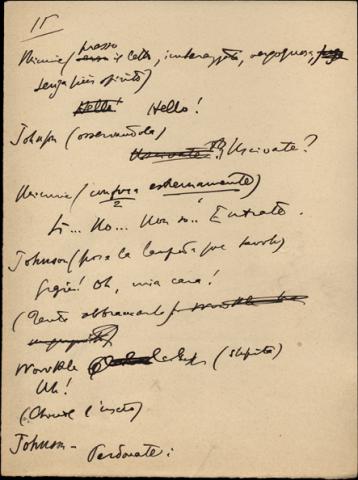 15
Minnie (presso il letto, imbarazzata, vergognosa,
senza più spirito)
Hello! Hello!
Johnson (osservandola)
Uscivate? Uscivate?
Minnie (confusa estremamente)
Sì... No... Non so! Entrate.
Johnson (posa la lampada sul tavolo)
Oh, mia cara!
(Tenta abbracciarla
Wowkle (stupita)
Uh!
(Chiude l'uscio)
Johnson - Perdonate: